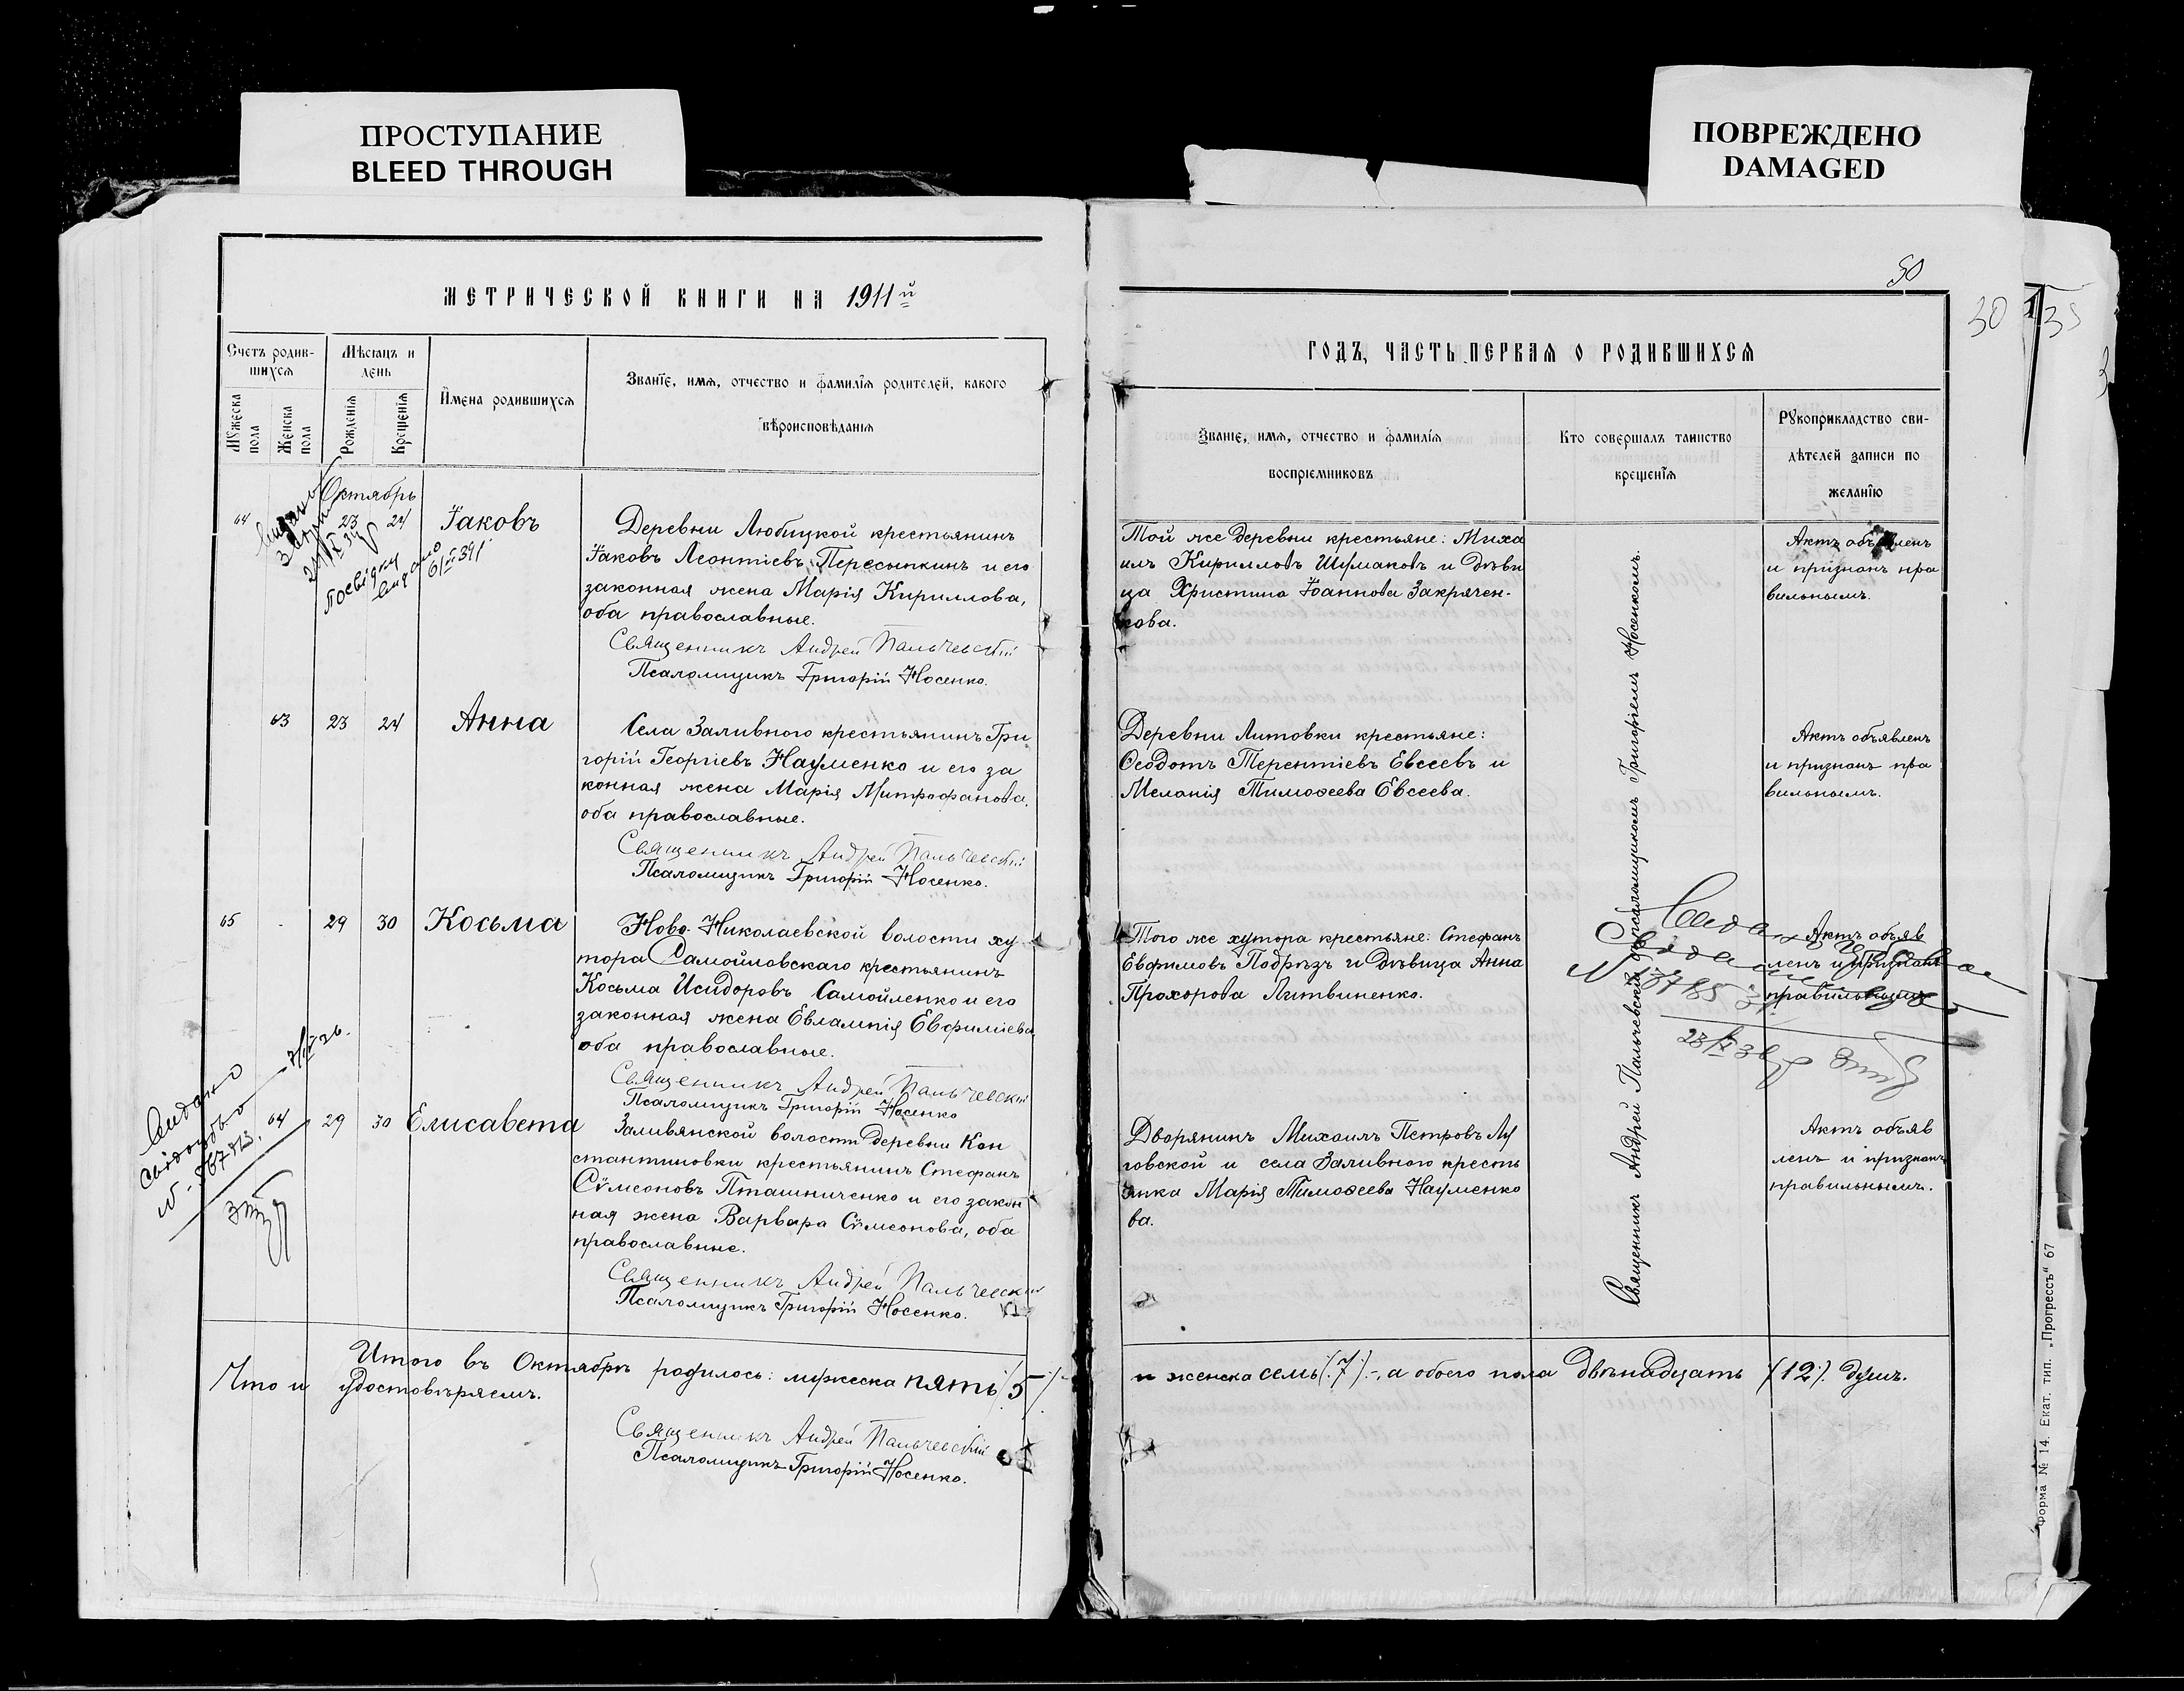 ПРОСТУПАНИЕ
BLEED THROUGH
ПОВРЕЖДЕНО
DAMAGED
МЕТРИЧЕСКОЙ КНИГИ НА 1911й
Счетъ родив-
шихся
Мѣсяцъ и
день
Мужеска
пола
Женска
пола
Рожденія
Крещенія
Имена родившихся
Званіе, имя, отчество и фамилія родителей, какого
вѣроисповѣданія
Октябрь
64 23 24 Іаковъ
Деревни Любицкой крестьянинъ
Іаковъ Леонтіевъ Пересыпкинъ и его
законная жена Марія Кириллова,
оба православные.
Священникъ Андрей Пальчевскій
Псаломщикъ Григорій Носенко.
63 23 24 Анна
Села Заливного крестьянинъ Гри
горій Георгіевъ Науменко и его за
конная жена Марія Митрофанова,
оба православные.
Священникъ Андрей Пальчевскій
Псаломщикъ Григорій Носенко.
65 - 29 30 Косьма
Ново-Николаевской волости ху
тора Самойловскаго крестьянинъ
Косьма Исидоровъ Самойленко и его
законная жена Евлампія Евфиміева
оба православные.
Священникъ Андрей Пальчевскій
Псаломщикъ Григорій Носенко
64 29 30 Елисавета
Заливянской волости деревни Кон
стантиновки крестьянинъ Стефанъ
Сѵмеоновъ Пташниченко и его закон
ная жена Варвара Сѵмеонова, оба
православные.
Священникъ Андрей Пальчевскій
Псаломщикъ Григорій Носенко.
Итого въ Октябрѣ родилось: мужеска пять (5)
Что и удостовѣряемъ.
Священникъ Андрей Пальчевскій
Псаломщикъ Григорій Носенко.
50
30
35
ГОДЪ, ЧАСТЬ ПЕРВАЯ О РОДИВШИХСЯ
Званіе, имя, отчество и фамилія
воспріемниковъ
Кто совершалъ таинство
крещенія
Рукоприкладство сви-
дѣтелей записи по
желанію
Той же деревни крестьяне: Миха
илъ Кирилловъ Шумаковъ и дѣви
ца Христина Іоаннова Закрячен-
кова.
Актъ объявленъ
и признанъ пра
вильнымъ.
Деревни Литовки крестьяне:
Ѳеодотъ Терентіевъ Евсеевъ и
Меланія Тимоѳеева Евсеева.
Актъ объявленъ
и признанъ пра
вильнымъ.
Того же хутора крестьяне: Стефанъ
Евфимовъ Подрѣзъ и дѣвица Анна
Прохорова Литвиненко.
Актъ объяв
ленъ и признанъ
правильнымъ
Дворянинъ Михаилъ Петровъ Лу
говской и села Заливного кресть
янка Марія Тимоѳеева Науменко
ва.
Актъ объяв
ленъ и признанъ
правильнымъ.
Священникъ Андрей Пальчевскій съ псаломщикомъ Григоріемъ Носенкомъ.
и женска семь (7) -, а обоего пола двѣнадцать (12). душъ.
Форма № 14. Екат. тип. „Прогрессъ“ 67